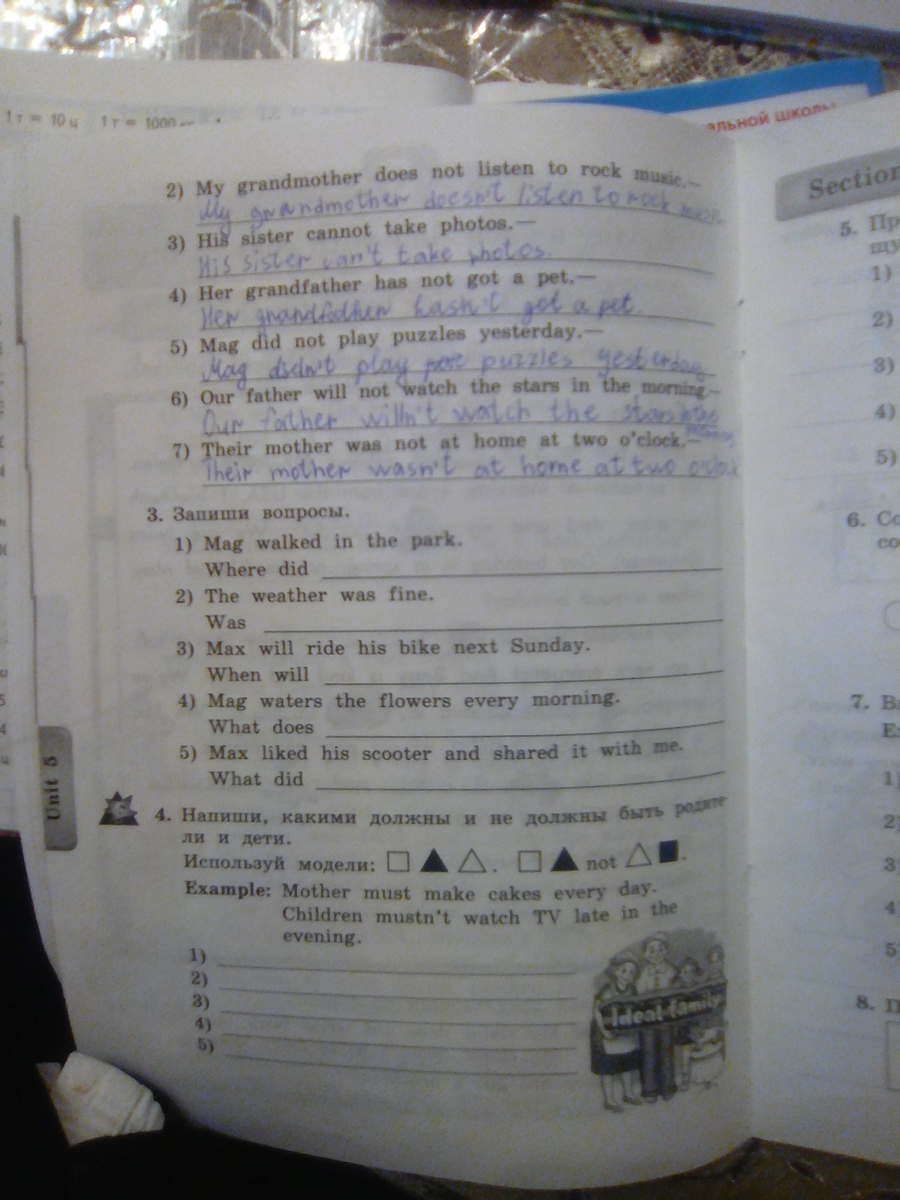 1 т = 10 ц 1 т = 1000
альной школы
2) My grandmother does not listen to rock music.—
My grandmother doesn't listen to rock music
3) His sister cannot take photos.—
His sister can't take photos.
4) Her grandfather has not got a pet.—
Her grandfather hasn't got a pet.
5) Mag did not play puzzles yesterday.—
Mag didn't play puzzles yesterday
6) Our father will not watch the stars in the morning.—
Our father willn't watch the stars in the morning
7) Their mother was not at home at two o'clock.—
Their mother wasn't at home at two o'clock
3. Запиши вопросы.
1) Mag walked in the park.
Where did
2) The weather was fine.
Was
3) Max will ride his bike next Sunday.
When will
4) Mag waters the flowers every morning.
What does
5) Max liked his scooter and shared it with me.
What did
Unit 5
4. Напиши, какими должны и не должны быть родите-
ли и дети.
Используй модели: . not .
Example: Mother must make cakes every day.
Children mustn't watch TV late in the
evening.
1)
2)
3)
4)
5)
Ideal family
Section
5. Пр
щу
1)
2)
3)
4)
5)
6. Со
со
7. В
Ex
1)
2)
3)
4)
5)
8. П